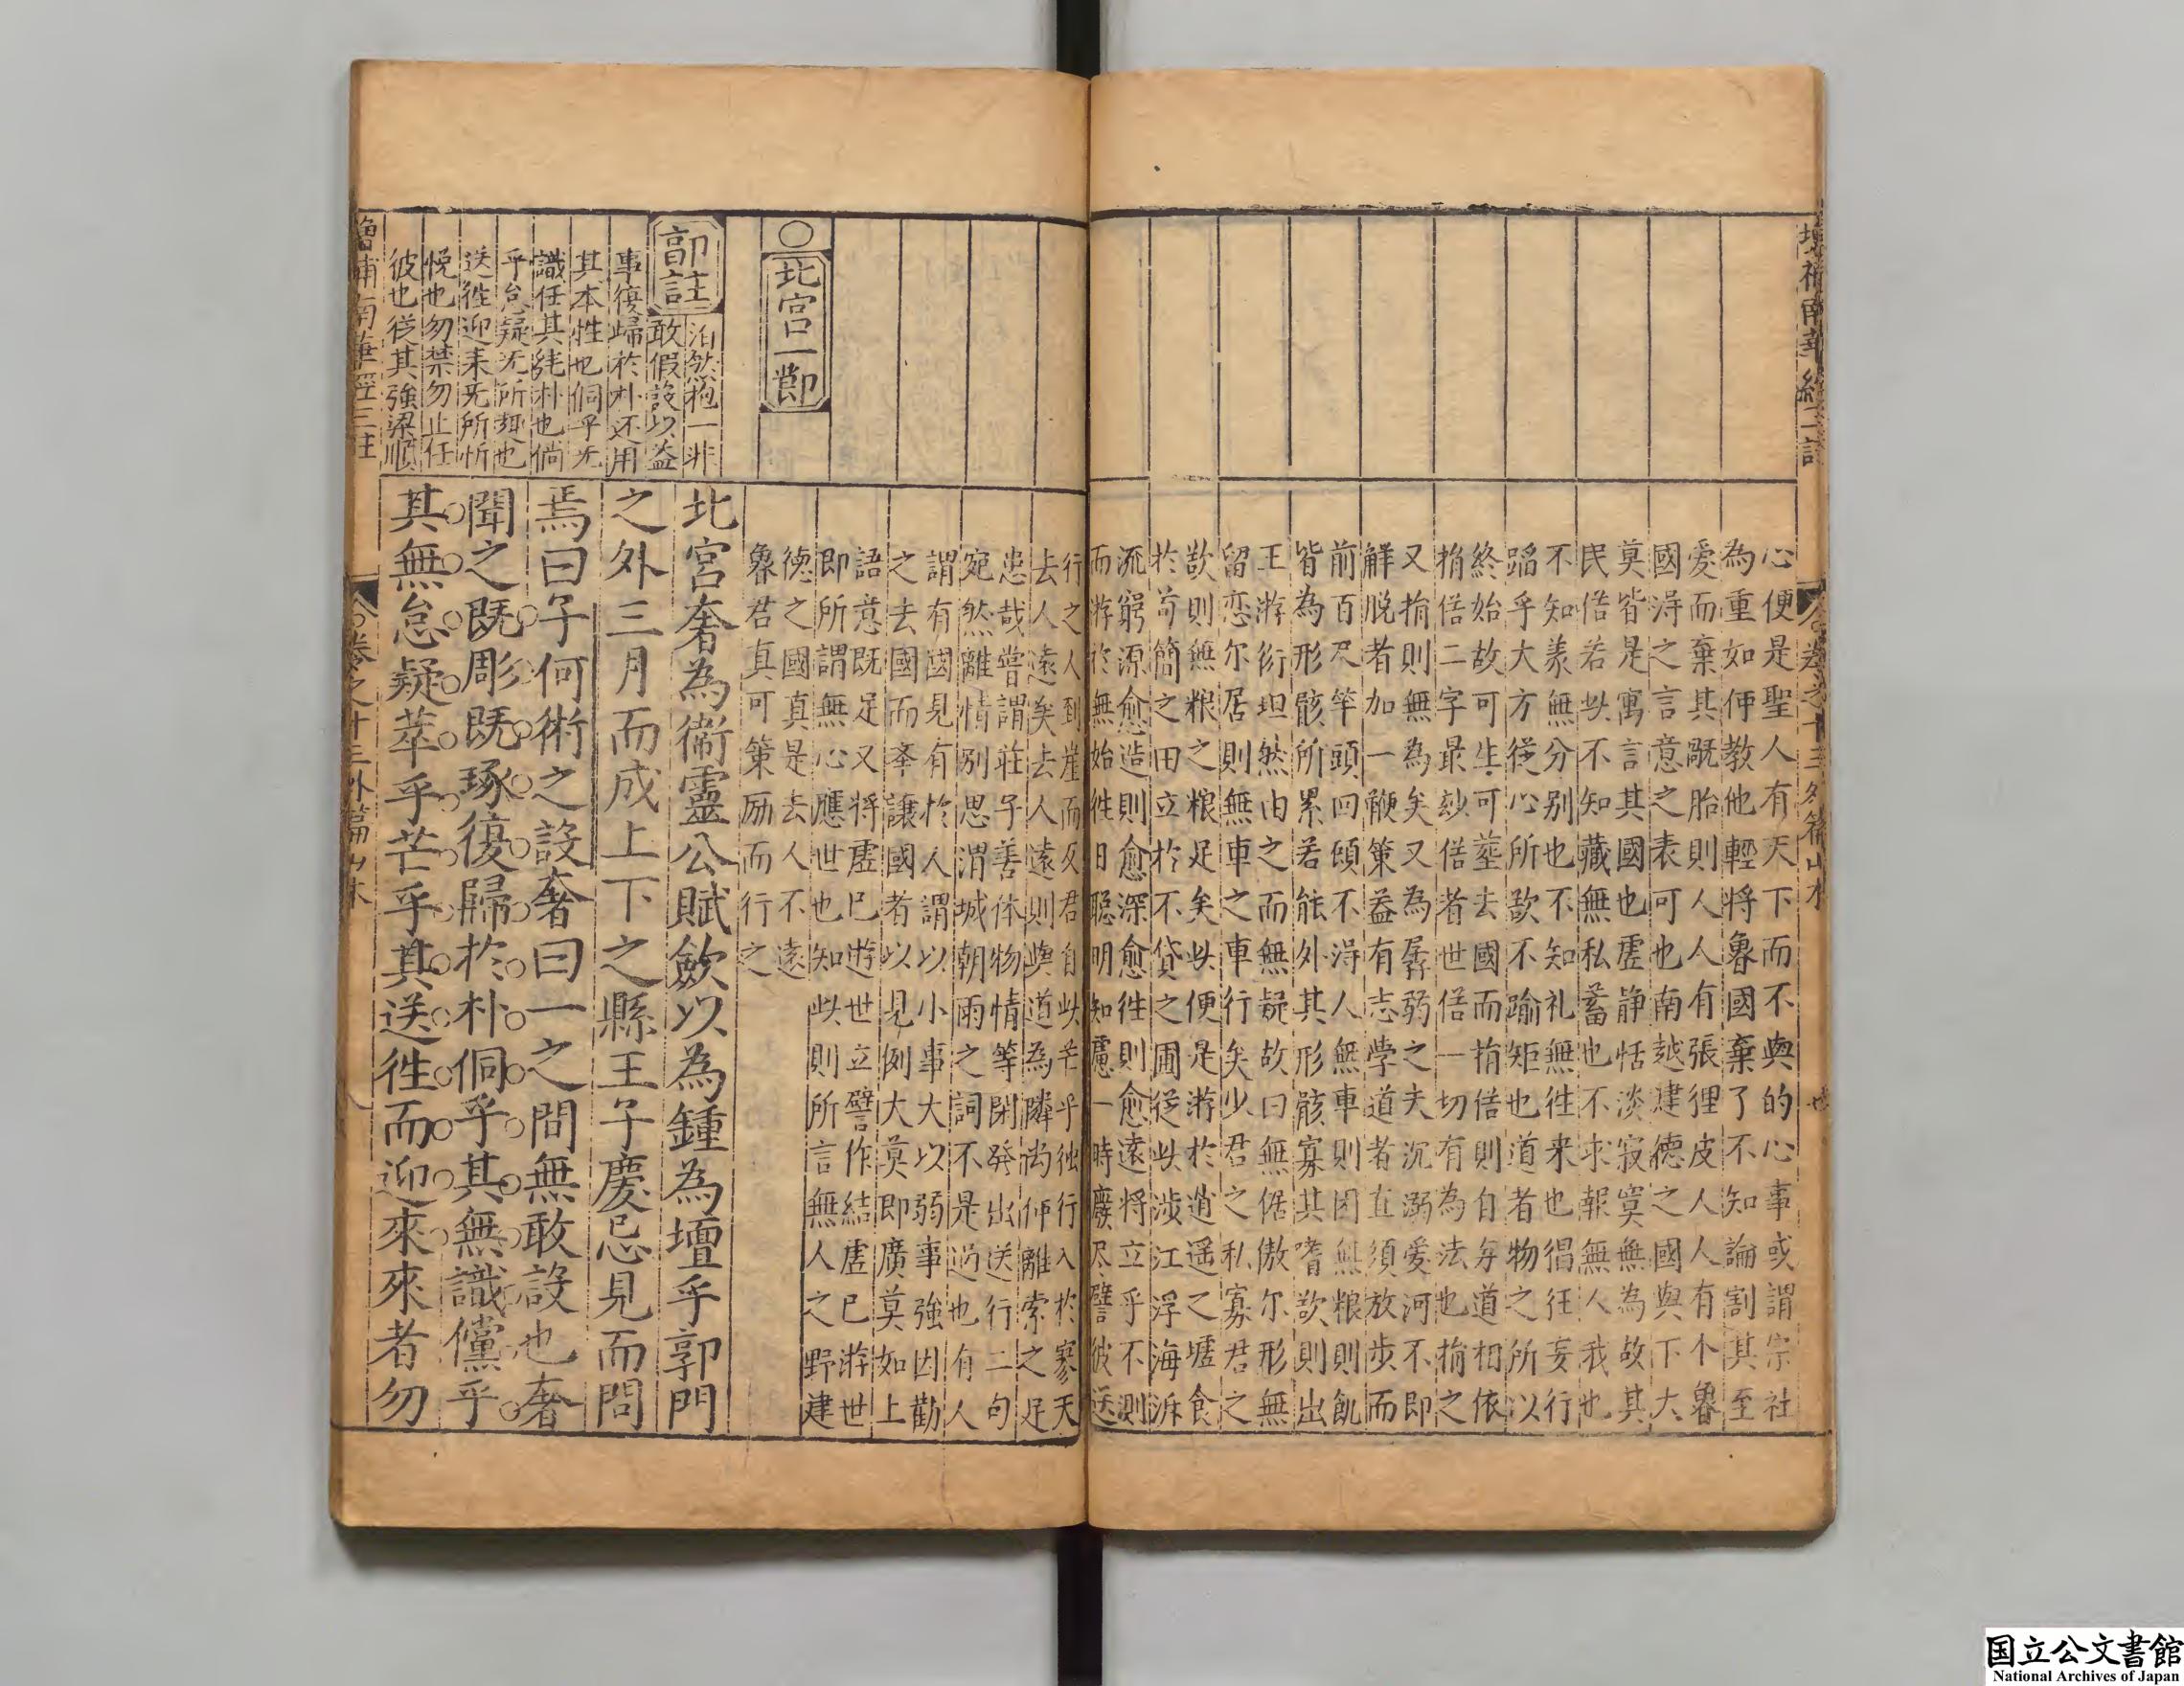 增補南華經三註
合卷之十三外篇山木
心便是聖人有天下而不與的心事或謂宗社
為重如何教他輕將魯國棄了不知論割其至
愛而棄其既胎則人人有張狸皮人人有个魯
國淂之言意之表可也南越建德之國與下大
莫皆是寓言其國也虛静恬淡寂寞無為故其
民偌若此不知藏無私蓄也不求報無人我也
不知義無分别也不知礼無徃来也猖狂妄行
蹈乎大方從心所欲不踰矩也道者物之所以
終始故可生可塟去國而捐俗則自與道相依
捐俗二字最妙俗者世俗一切有為法也捐之
又捐則無為矣又為孱弱之夫沉溺爱河不即
解脱者加一鞭策益有志學道者直須放步而
前百尺竿頭回頭不淂人無車則困無粮則飢
皆為形骸所累若能外其形骸寡其嗜欲則出
王游衍坦然由之而無疑故曰無倨傲尔形無
留恋尔居則無車之車行矣少君之私寡君之
欲則無粮之粮足矣此便是游於逍遥之墟食
於苟簡之田立於不貸之圃從此涉江浮海泝
流窮源愈造則愈深愈徃則愈遠將立乎不測
而游於無始徃日聰明知慮一時廢尽譬彼送
行之人到崖而反君自此芒乎独行入於寥天
去人遠矣去人遠則與道為隣尚何離索之足
患哉嘗謂莊子善体物情等閑發出送行二句
宛然離情别思渭城朝雨之詞不是過也有人
謂有國見有於人謂以小事大以弱事強因勸
之去國而率讓國者以見例大莫即廣莫如上
語意既足又將虛己遊世立譬作結虛己游世
即所謂無心應世也知此則所言無人之野建
德之國真是去人不遠
魯君真可策励而行之
○北宮一節
北宮奢為衞靈公賦斂以為鍾為壇乎郭門
之外三月而成上下之縣王子慶忌見而問
焉曰子何術之設奢曰一之間無敢設也奢
聞之既彫既琢復歸於朴侗乎其無識儻乎
其無怠疑萃乎芒乎其送徃而迎來來者勿
郭註
泊然抱一非
敢假設以益
事復歸於朴还用
其本性也侗乎无
識任其純朴也倘
乎怠疑无所趣也
送徃迎来无所忻
悦也勿禁勿止任
彼也從其強梁順
增補南華經三註
合卷之十三外篇山木
国立公文書館
National Archives of Japan